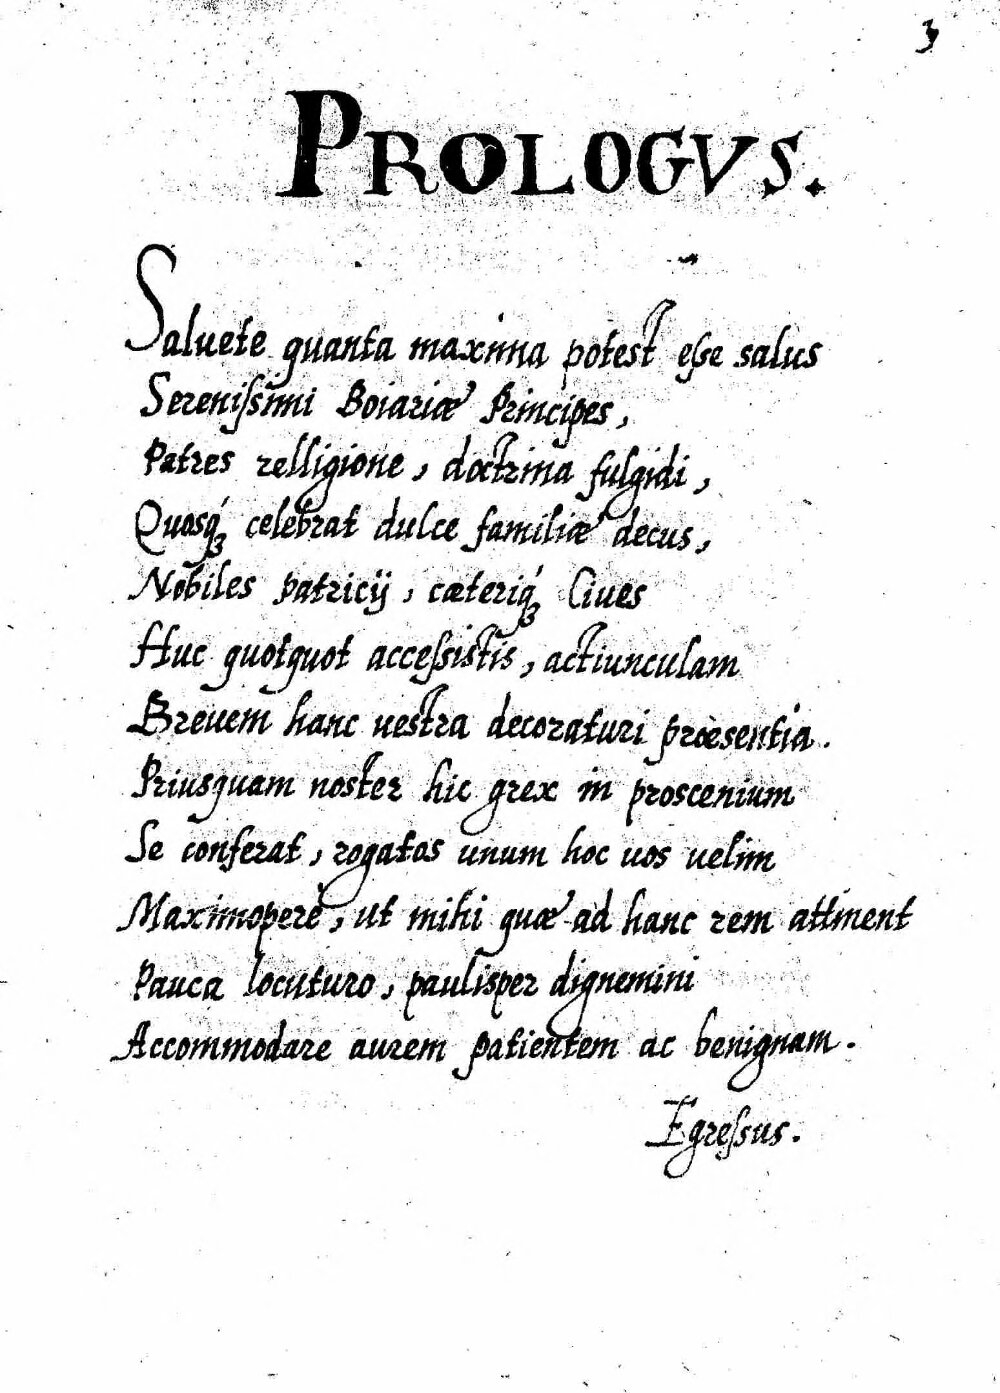 3
PROLOGVS.
Saluete quanta maxima potest eſse salus
Sereniſsimi Boiariæ Principes,
Patres relligione, doctrina fulgidi,
Quosq́ꝫ celebrat dulce familiæ decus,
Nobiles patricij, cæteriq́ꝫ Ciues
Huc quotquot acceſsistis, actiunculam
Breuem hanc uestra decoraturi præsentia.
Priusquam noster hic grex in proscenium
Se conferat, rogatos unum hoc uos uelim
Maximoperè, ut mihi quæ ad hanc rem attinent
Pauca locuturo, paulisper dignemini
Accommodare aurem patientem ac benignam.
Egreſsus.